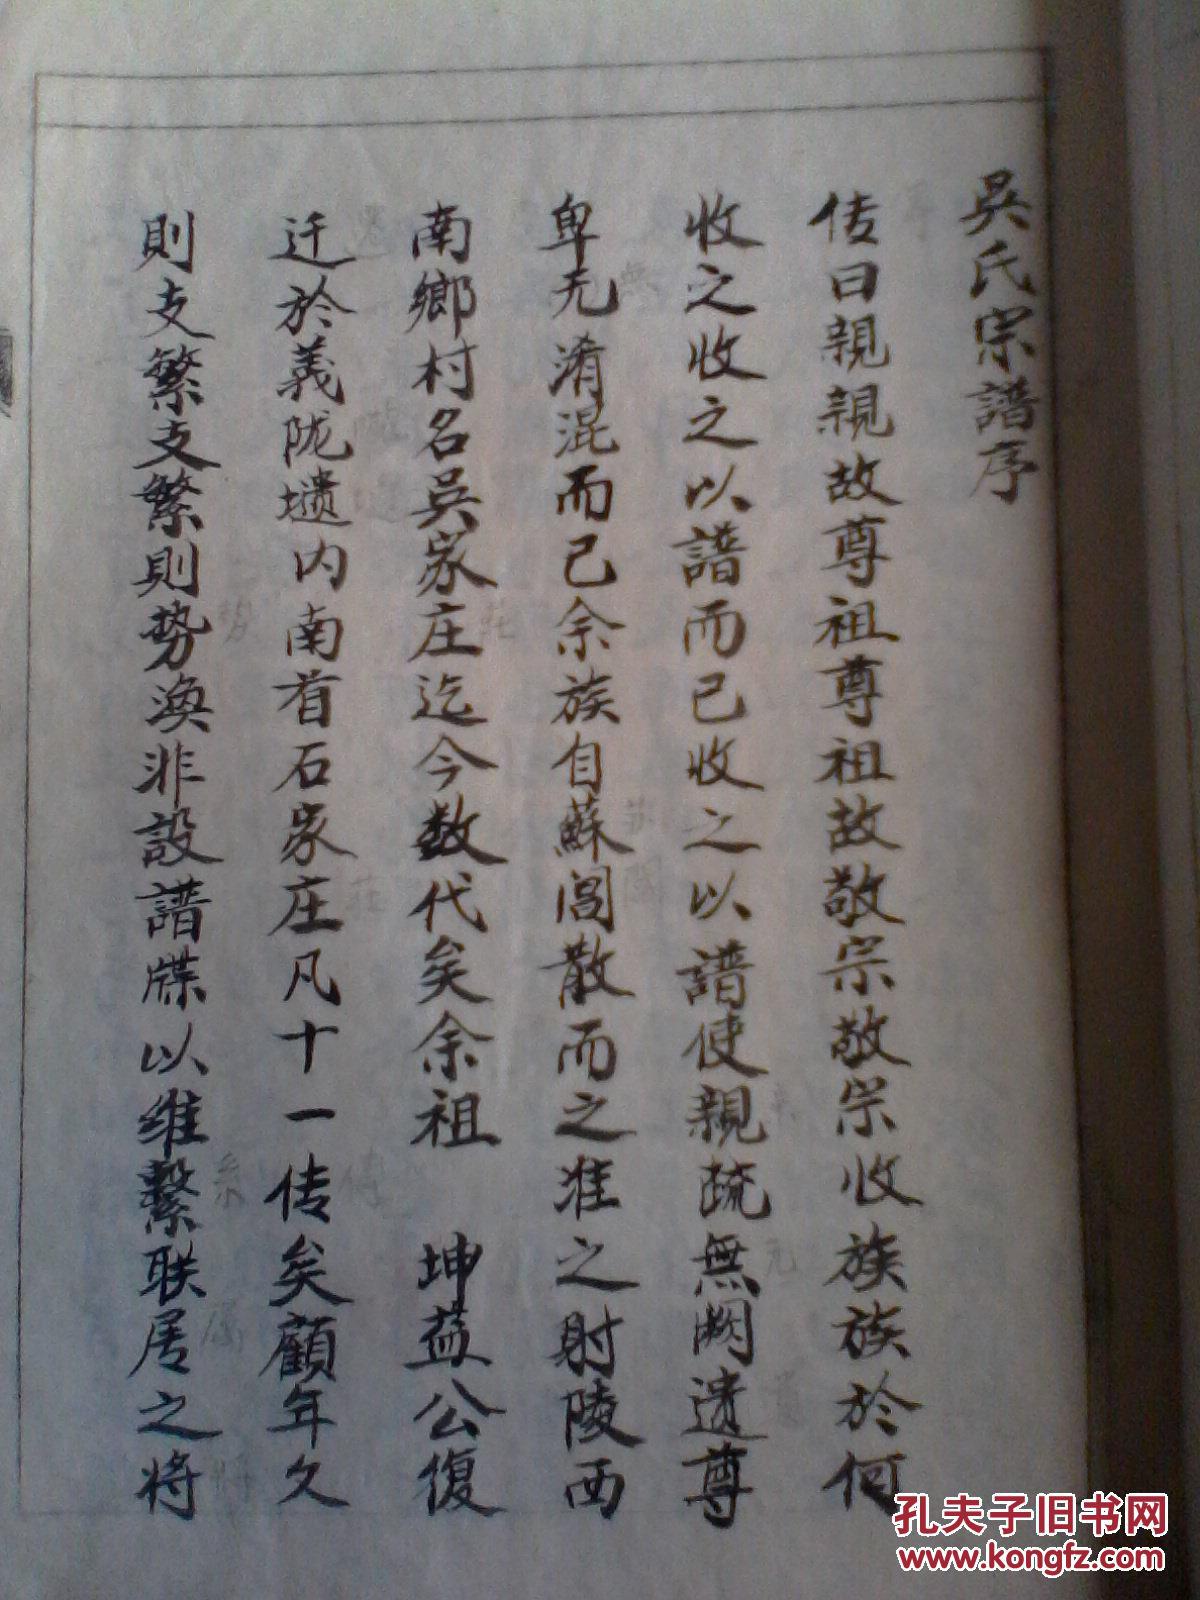 吳氏宗譜序
传曰親親故尊祖尊祖故敬宗敬宗收族族於何
收之收之以譜而已收之以譜使親疏無闕遺尊
卑无淆混而已余族自蘇閶散而之淮之射陵西
南鄉村名吳家庄迄今数代矣余祖　坤益公復
迁於義陇壝内南首石家庄凡十一传矣顧年久
則支繁支繁則势渙非設譜牒以维繫联居之将
孔夫子旧书网
www.kongfz.com